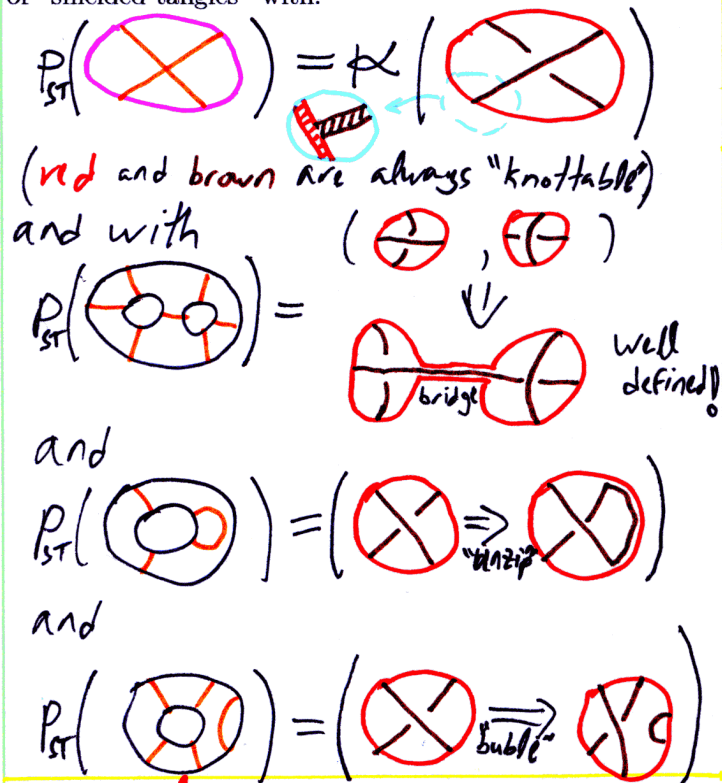 of "shielded tangles" with:
P_ST( ) = α ( )
(red and brown are always "knottable")
and with ( , )
P_ST( ) = ⇓
bridge
well defined!
and
P_ST( ) = ( ⇒ "unzip" )
and
P_ST( ) = ( ⇒ "buble" )